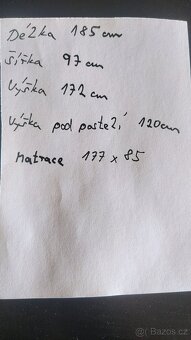 Délka 185 cm
Šířka 97 cm
Výška 172 cm
Výška pod postelí 120cm
Matrace 177 x 85
© Bazoš.cz